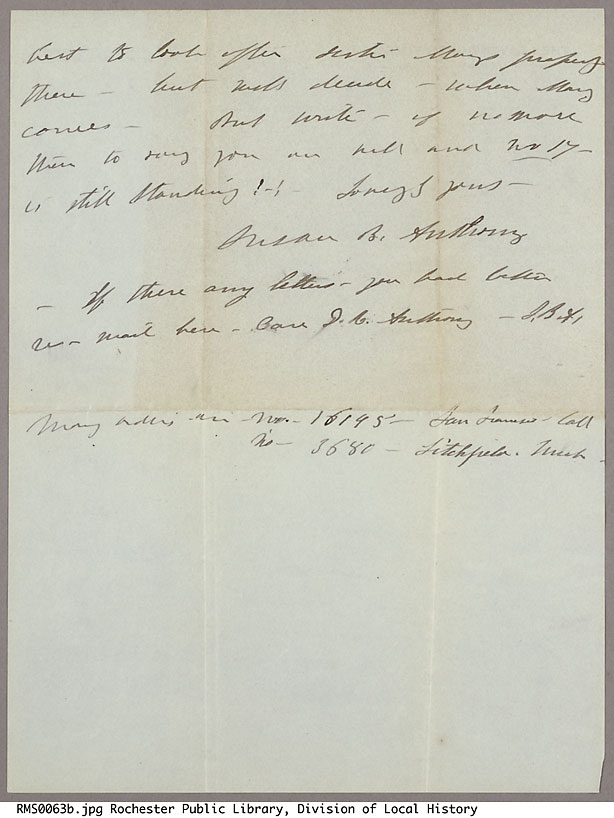 best to look after sister Mary's property
there - but will decide - when Mary
comes - But write - if no more
than to say you are well and no 17 -
is still standing !-! - Lovingly yours -
Susan B. Anthony
- If there any letters - you had better
re-mail here - Care D. R. Anthony - S.B.A,
Money orders are - No. - 16195 - San Francisco - Call
No - 3680 - Litchfield. Mich -
RMS0063b.jpg Rochester Public Library, Division of Local History